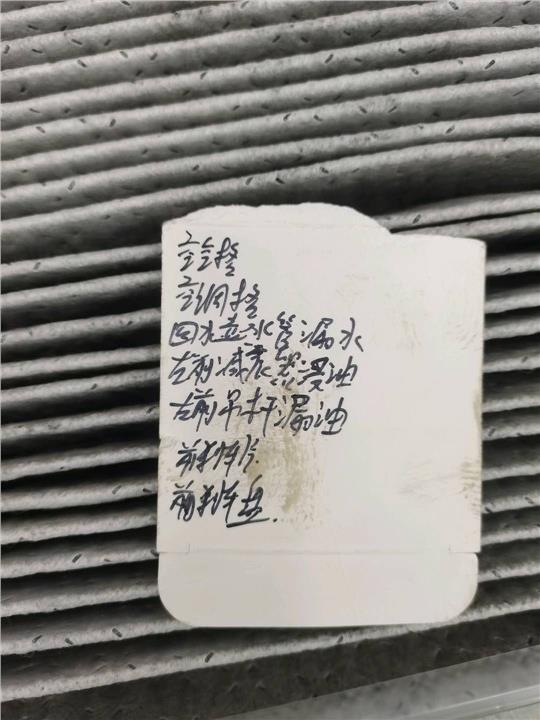 空空格
空调格
回水三水管漏水
左前减震器漏油
左前吊杆漏油
前刹车片
前刹车盘